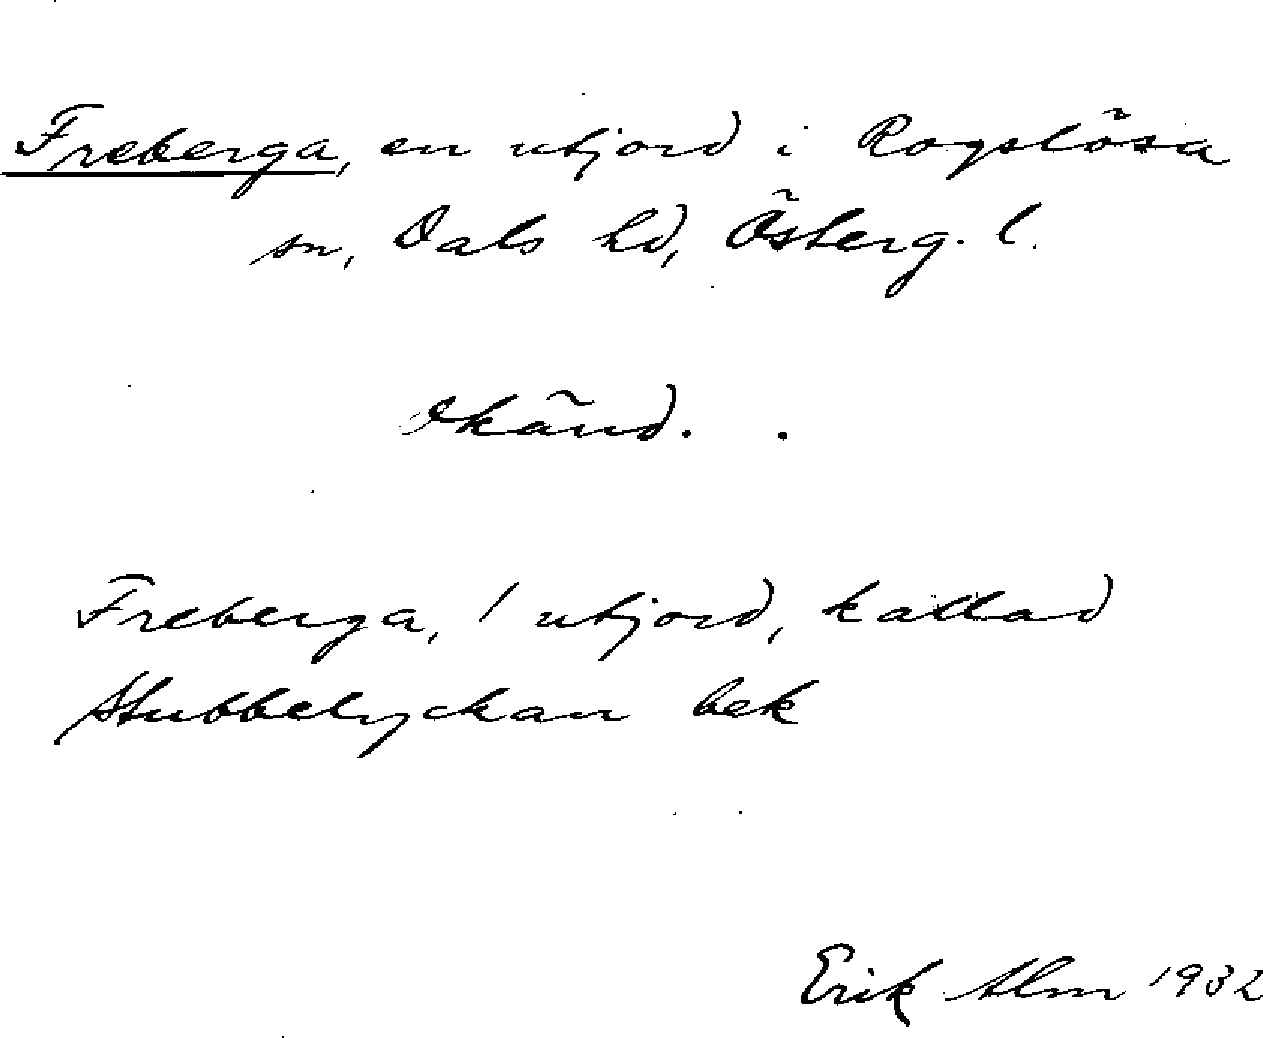 Freberga, en utjord i Rogslösa
sn, Dals hd, Österg. l.
Okänd.
Freberga, 1 utjord, kallad
Stubbelyckan bek
Erik Alm 1932